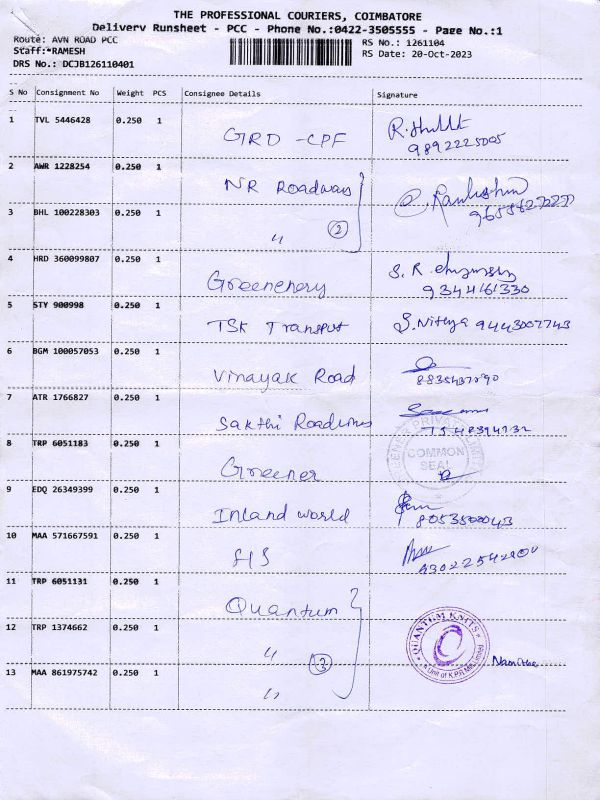 THE PROFESSIONAL COURIERS, COIMBATORE
Delivery Runsheet - PCC - Phone No.:0422-3505555 - Page No.:1
Route: AVN ROAD PCC RS No.: 1261104
Staff:*RAMESH RS Date: 20-Oct-2023
DRS No.: DCJB126110401
S No Consignment No Weight PCS Consignee Details Signature
1 TVL 5446428 0.250 1 GRD -CPF 9892225005
2 AWR 1228254 0.250 1 NR Roadways
3 BHL 100228303 0.250 1 " 2
4 HRD 360099807 0.250 1 Greenenery S. R 934461330
5 STY 900998 0.250 1 TSK Transput S. Nithya 9443007743
6 BGM 100057053 0.250 1 Vinayak Road
7 ATR 1766827 0.250 1 Sakthi Roadlines
8 TRP 6051183 0.250 1 Greener COMMON SEAL
9 EDQ 26349399 0.250 1 Inland world
10 MAA 571667591 0.250 1
11 TRP 6051131 0.250 1 Quantum
12 TRP 1374662 0.250 1 " 3 QUANTUM KNITS
13 MAA 861975742 0.250 1 "